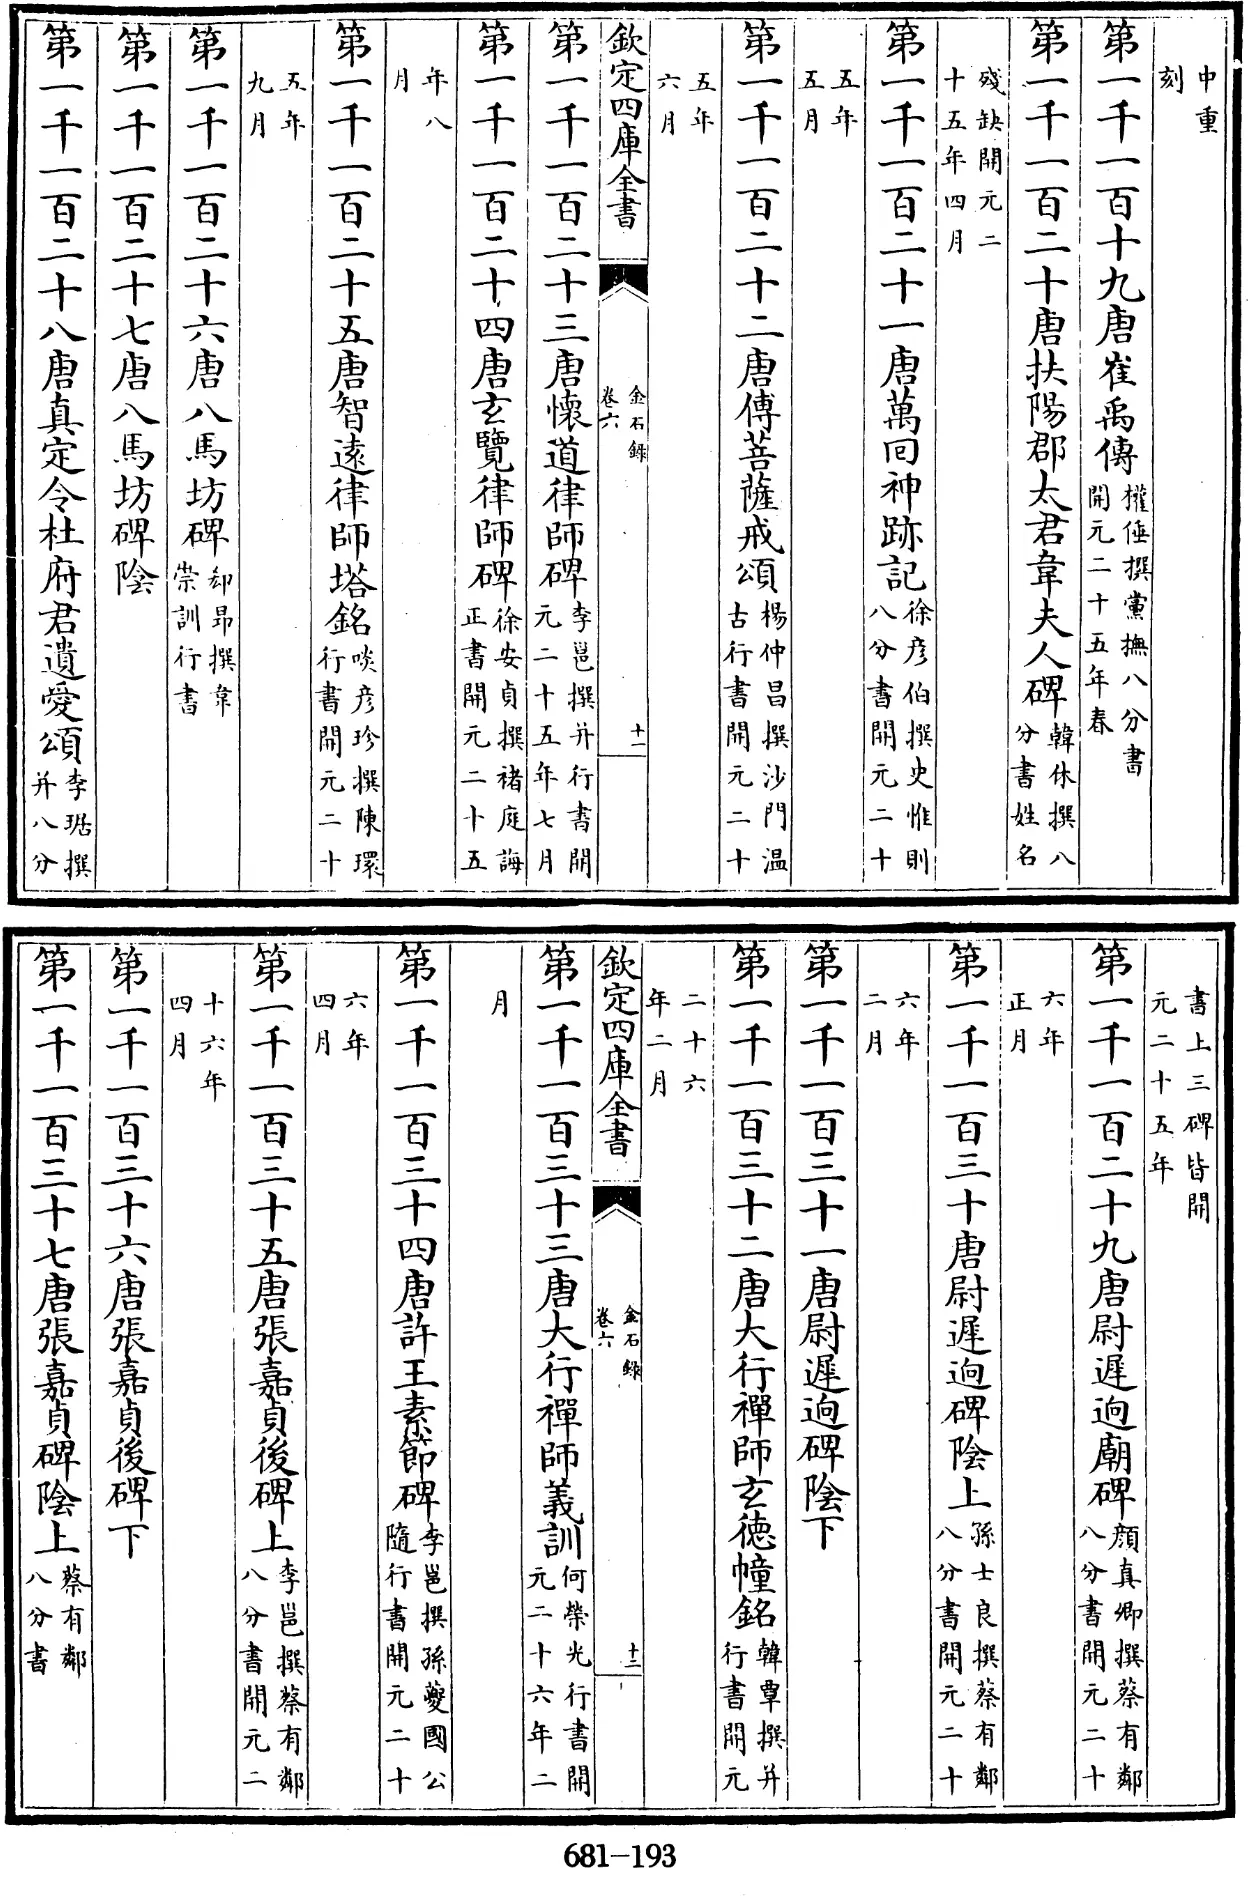 中重
刻
第一千一百十九唐崔禹傳權倕撰黨撫八分書
開元二十五年春
第一千一百二十唐扶陽郡太君韋夫人碑韓休撰八
分書姓名
殘缺開元二
十五年四月
第一千一百二十一唐萬回神跡記徐彥伯撰史惟則
八分書開元二十
五年
五月
第一千一百二十二唐傳菩薩戒頌楊仲昌撰沙門温
古行書開元二十
五年
六月
欽定四庫全書
金石錄
卷六
十一
第一千一百二十三唐懷道律師碑李邕撰并行書開
元二十五年七月
第一千一百二十四唐玄覽律師碑徐安貞撰褚庭誨
正書開元二十五
年八
月
第一千一百二十五唐智遠律師塔銘啖彥珍撰陳環
行書開元二十
五年
九月
第一千一百二十六唐八馬坊碑郄昂撰韋
崇訓行書
第一千一百二十七唐八馬坊碑陰
第一千一百二十八唐真定令杜府君遺愛頌李琚撰
并八分
書上三碑皆開
元二十五年
第一千一百二十九唐尉遲迥廟碑顏真卿撰蔡有鄰
八分書開元二十
六年
正月
第一千一百三十唐尉遲迥碑陰上孫士良撰蔡有鄰
八分書開元二十
六年
二月
第一千一百三十一唐尉遲迥碑陰下
第一千一百三十二唐大行禪師玄德幢銘韓覃撰并
行書開元
二十六
年二月
欽定四庫全書
金石錄
卷六
十二
第一千一百三十三唐大行禪師義訓何榮光行書開
元二十六年二
月
第一千一百三十四唐許王素節碑李邕撰孫夔國公
隨行書開元二十
六年
四月
第一千一百三十五唐張嘉貞後碑上李邕撰蔡有鄰
八分書開元二
十六年
四月
第一千一百三十六唐張嘉貞後碑下
第一千一百三十七唐張嘉貞碑陰上蔡有鄰
八分書
681-193